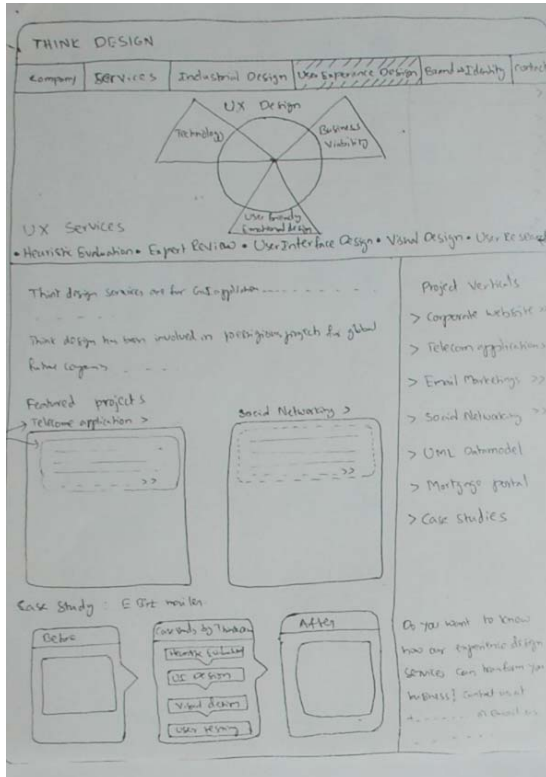 THINK DESIGN
Company Services Industrial Design User Experience Design Brand & Identity Contact
UX Design
Technology
Business Viability
User friendly
Emotional design
UX Services
• Heuristic Evaluation • Expert Review • User Interface Design • Visual Design • User Research
Think design services are for GUI application
Think design has been involved in prestigious projects for global
Featured projects
> Telecome application >
>>
Social Networking >
>>
Case Study :
Before
Case Study by Think
Heuristic Evaluation
UI Design
Visual design
User testing
After
Project Verticals
> Corporate website
> Telecom application >
> Email Marketings >>
> Social Networking >>
> UML Datamodel
> Mortgage portal
> Case Studies
Do you want to know
how our experience design
services can transform your
business?